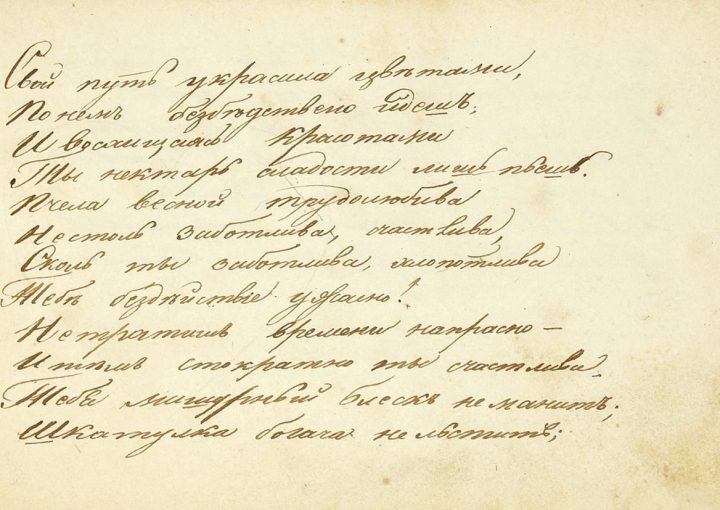 Свой путь украсила цвѣтами,
По немъ безбѣдственно идешъ;
И восхищаясь красотами
Ты нектаръ сладости лишь пьешь.
Пчела весной трудолюбива
Нестоль заботлива, счастлива,
Сколь ты заботлива, хлопотлива
Тебѣ бездѣйствіе ужасно!
Нетратишь времени напрасно —
И тѣмъ стократно ты счастлива.
Тебя мишурный блескъ неманитъ;
Шкатулка богача нельститъ;